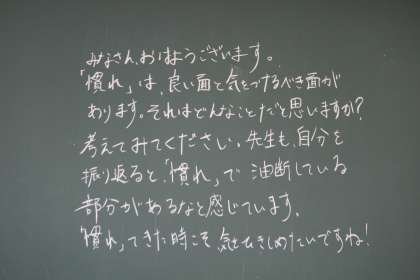 みなさん、おはようございます。
「慣れ」は、良い面と気をつけるべき面が
あります。それはどんなことだと思いますか?
考えてみてください。先生も、自分を
振り返ると、「慣れ」で油断している
部分があるなと感じています。
「慣れ」てきた時こそ、気をひきしめたいですね!